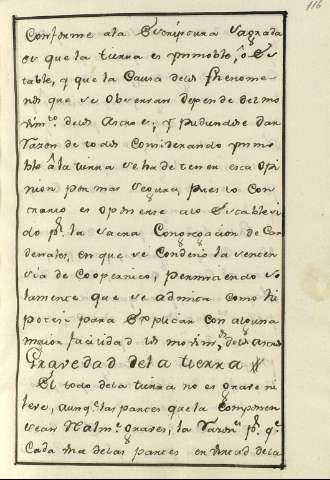 116
Conforme ala Escriptura Sagrada
es que la tierra es ymmoble, ô Es
table, y que la Causa delos phenome-
nos que se observan depende del mo
vim.to delos Astros; y pudiendose dar
razon de todos Considerando ymmo
ble â la tierra se ha de tener esta opi
nion por mas segura, pues lo Con
trario es oponerse alo Estableci
do p.r la sacra Congregacion de Car
denales, en que se Condenò la senten
cia de Copernico, permitiendo so
lamente que se admita como hi
potesi para Explicar con alguna
maior facilidad los movim.tos delos Astros
Gravedad dela tierra
El todo dela tierra no es grave ni
leve, aunq.e las partes que la Componen
sean Realm.te graves, la razon es p.r q.e
Cada una delas partes en virtud dela